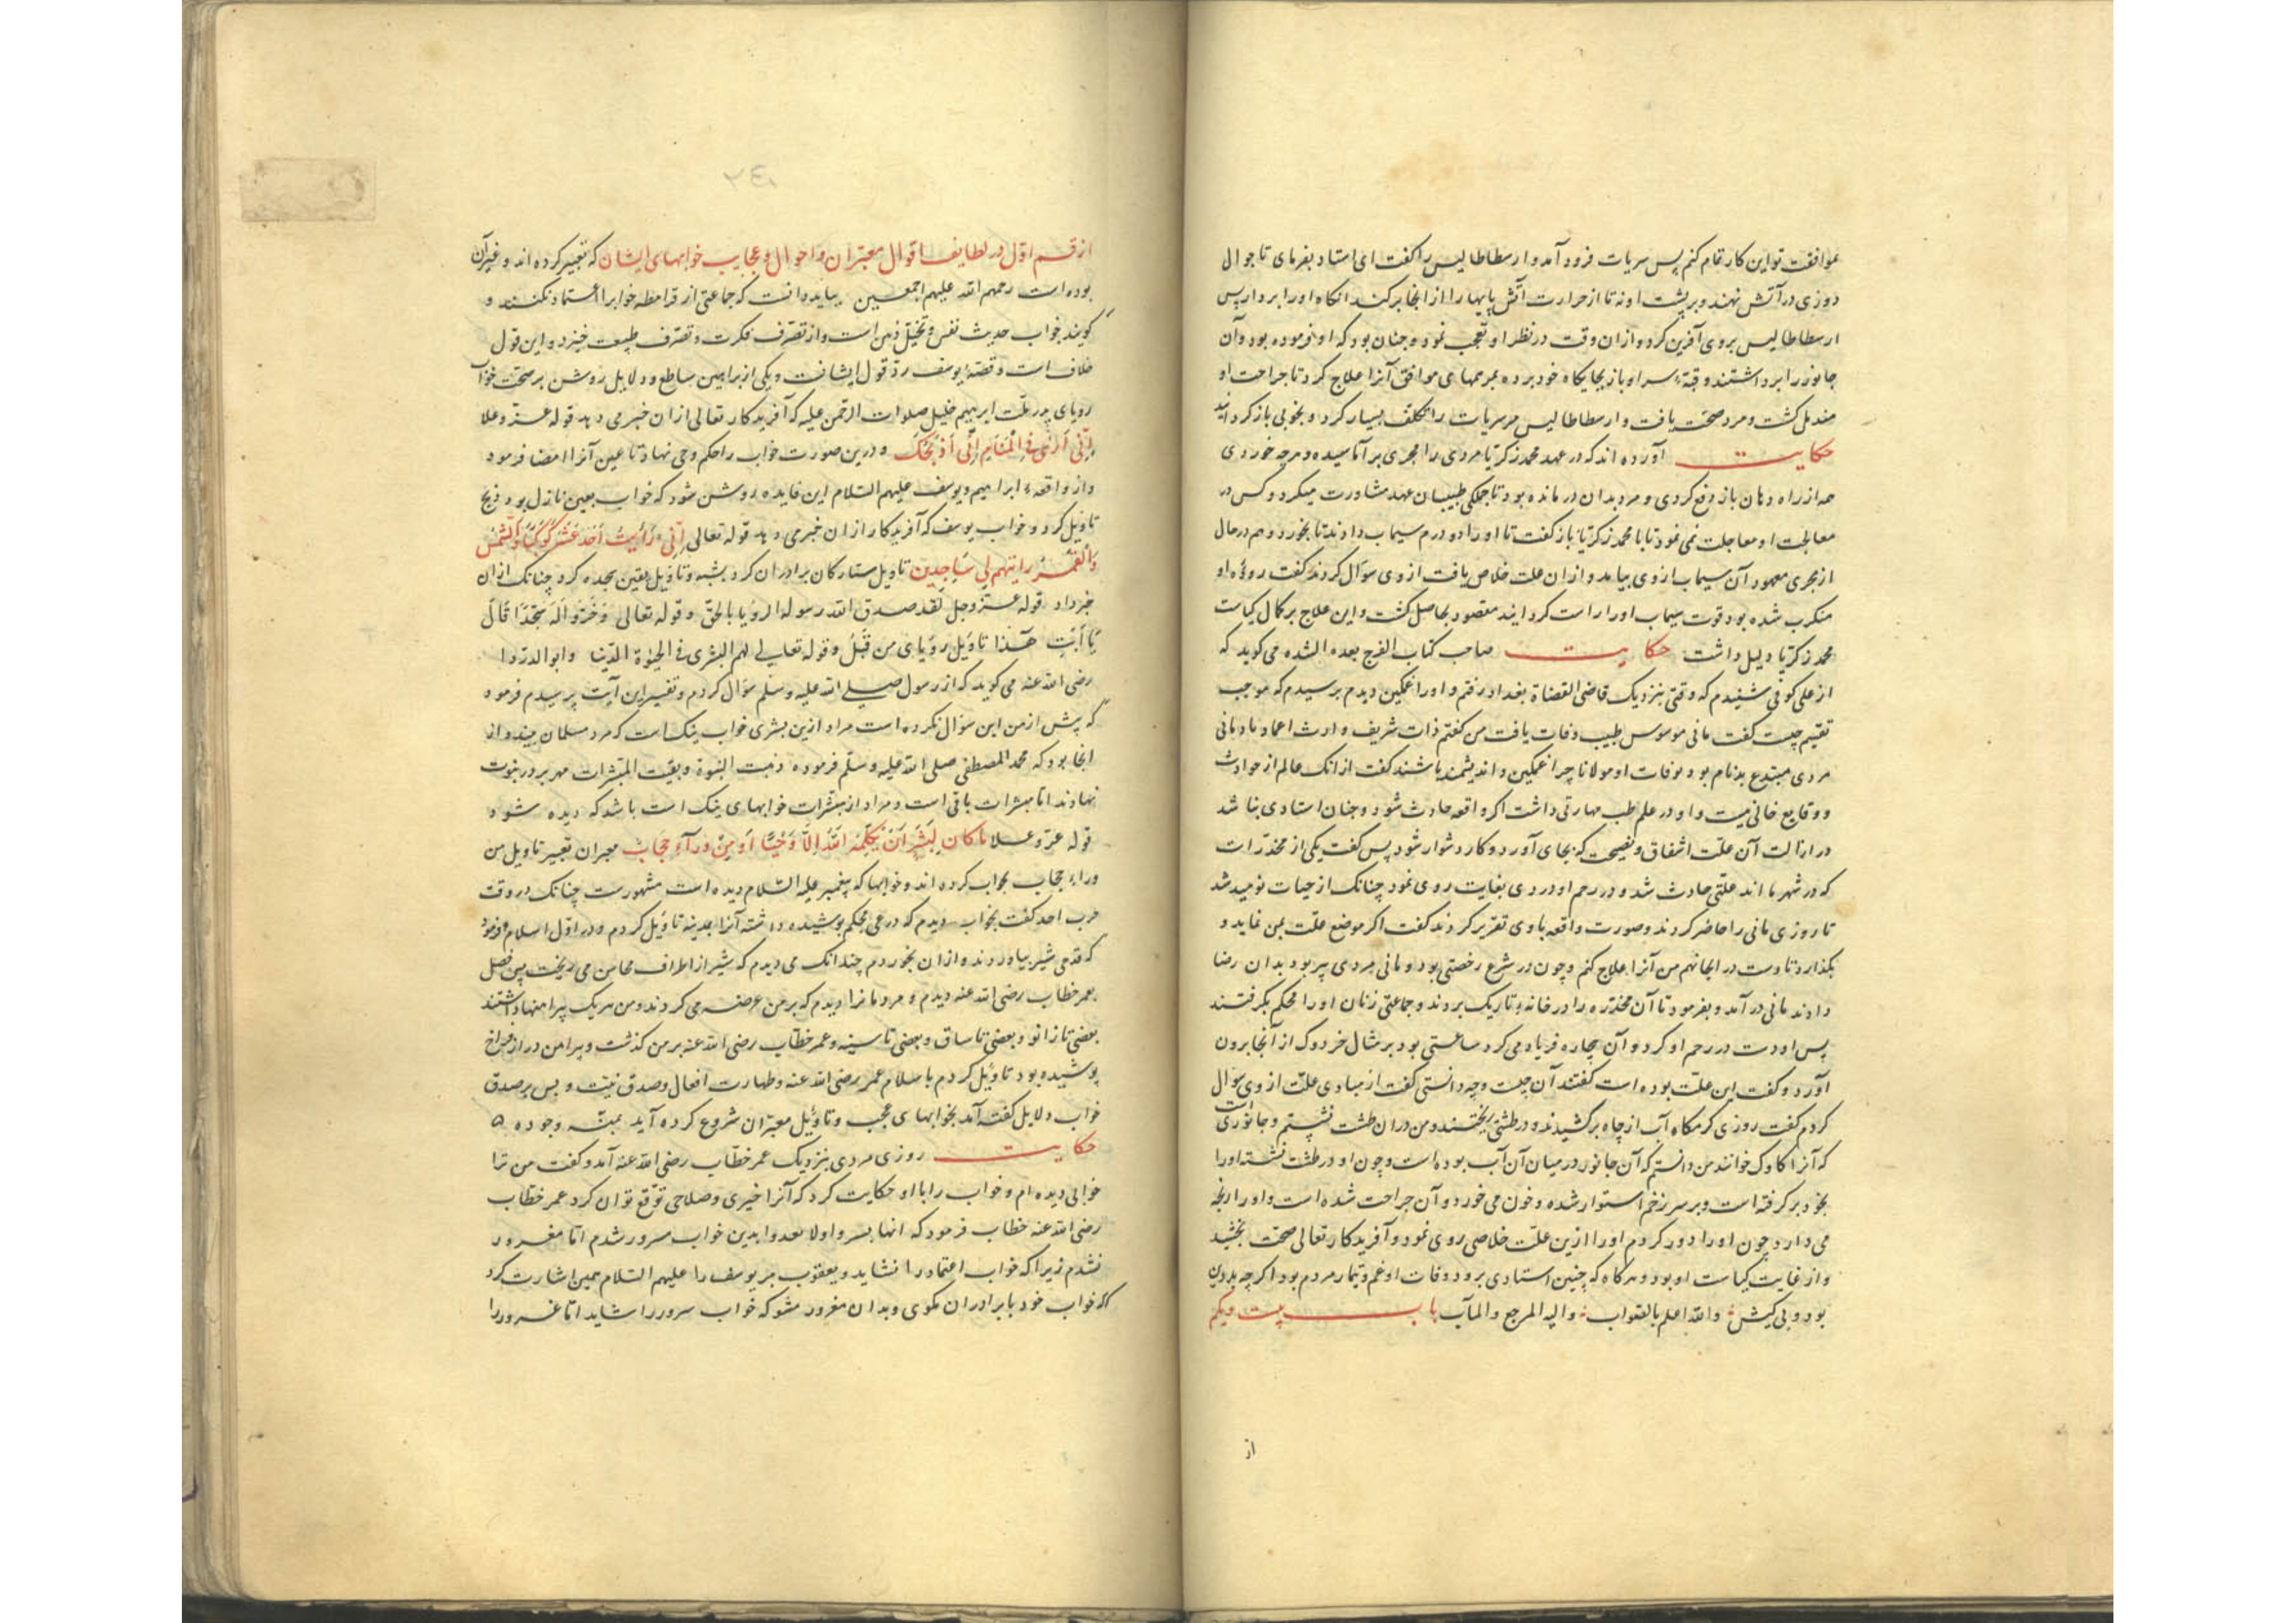 موافقت تو این کار تمام کنم پس سربات فرود آمد و ارسطاطالیس را کفت ای استاد بفرمای تا جوال
دوزی در آتش نهند و بر پشت او نه تا از حرارت آتش پایها را از انجا برکند انکاه او را بردار پس
ارسطاطالیس بروی آفرین کرد و ازان وقت در نظر او تعجب نمود و جنان بود که او فرموده بود و آن
جانور را برداشتند و قبّهٔ سر او باز بجایکاه خود برده بمرهمهای موافق آنرا علاج کرد تا جراحت او
مندمل کشت و مرد صحّت یافت و ارسطاطالیس مر سربات را تکلف بسیار کرد و بخوبی باز کردانید
حکایت آورده اند که در عهد محمد زکریّا مردی را مجری بر آماسیده و هرچه خوردی
همه از راه دهان باز دفع کردی و مرد بدان در مانده بود تا جملکی طبیبان عهد مشاورت میکرد و کس در
معالجت او معاجلت نمی نمود تا با محمد زکریّا باز کفت تا او را دو درم سیماب دادند تا بخورد و هم در حال
از مجری معهود آن سیماب ازوی بیامد و ازان علت خلاص یافت ازوی سؤال کردند کفت رودهٔ او
منکرب شده بود قوت سیماب او را راست کردانید مقصود بحاصل کشت و این علاج بر کمال کیاست
محمد زکریّا دلیل داشت حکایت صاحب کتاب الفرج بعد الشده می کوید که
از علی کوفی شنیدم که وقتی بنزدیک قاضی القضاة بغداد رفتم و او را غمکین دیدم پرسیدم که موجب
تقسیم چیست کفت مانی موسوس طبیب وفات یافت من کفتم ذات شریف وارث اعمار باد مانی
مردی مبتدع بدنام بود بوفات او مولانا چرا غمکین و اندیشمند باشند کفت از انک عالم از حوادث
و وقایع خالی نیست و او در علم طب مهارتی داشت اکر واقعه حادث شود و جنان استادی بنا شد
در ازالت آن علّت اشفاق و نصیحت که بجای آورد و کار دشوار شود پس کفت یکی از مخدّرات
که در شهر ما اند علّتی حادث شد و در رحم او دردی بغایت روی نمود چنانک از حیات نومید شد
تا روزی مانی را حاضر کردند و صورت واقعه باوی تقریر کردند کفت اکر موضع علّت بمن نماید و
بکذارد تا دست در انجا نهم من آنرا علاج کنم و چون در شرع رخصتی بود و مانی مردی پیر بود بدان رضا
دادند مانی در آمد و بفرمود تا آن مخدّره را در خانهٔ تاریک بردند و جماعتی زنان او را محکم بکرفتند
پس او دست در رحم او کرد و آن بیچاره فریاد می کرد ساعتی بود بر مثال خردوک از آنجا برون
آورد و کفت این علّت بوده است کفتند آن چیست و چه دانستی کفت از مبادی علّت ازوی سؤال
کردم کفت روزی کرمکاه آب از چاه برکشیدند و در طشتی ریختند و من در ان طشت نشستم و جانوری است
که آنرا کاوک خوانند من دانستم که آن جانور در میان آن آب بوده است و چون او در طشت نشسته او را
بخود برکرفته است و بر سر زخم استوار شده و خون می خورد و آن جراحت شده است و او را رنجه
می دارد چون او را دور کردم او را ازین علّت خلاصی روی نمود و آفریدکار تعالی صحّت بخشید
و از غایت کیاست او بود و هرکاه که چنین استادی برود وفات او غم و تیمار مردم بود اکر چه بد دین
بود و بی کیش والله اعلم بالصّواب والیه المرجع والمآب باب بیست و یکم
از
از قسم اوّل در لطایف اقوال معبّران و احوال و عجایب خوابهای ایشان که تعبیر کرده اند و غیر آن
بوده است رحمهم الله علیهم اجمعین بباید دانست که جماعتی از قرامطه خواب را اعتماد نکنند و
کویند خواب حدیث نفس و تخیّل ذهن است و از تصرّف فکرت و تصرّف طبیعت خیزد و این قول
خلاف است و قصّهٔ یوسف ردّ قول ایشانست و یکی از براهین ساطع و دلایل روشن بر صحّت خواب
رویای پدر ملّت ابرهیم خلیل صلوات الرّحمن علیه که آفریدکار تعالی از ان خبر می دهد قوله عزّ و علا
اِنّی اَرٰی فِی الْمَنَامِ اَنّی اَذْبَحُکَ و درین صورت خواب را حکم وحی نهاد تا عین آنرا امضا فرمود
و از واقعهٔ ابراهیم و یوسف علیهم السّلام این فایده روشن شود که خواب بعین نازل بود ذبح
تاویل کرد و خواب یوسف که آفریدکار از ان خبر می دهد قوله تعالی اِنّی رَاَیْتُ اَحَدَ عَشَرَ کَوْکَبًا وَالشَّمْسَ
وَالْقَمَرَ رایتهم لی سَاجِدین تاویل ستارکان برادران کرد بشبه و تاویل بعین سجده کرد چنانک ازان
خبر داد قوله عزّ و جل لَقَد صدق الله رسوله الرویا بالحقّ و قوله تعالی وَخَرُّوا لَهُ سُجَّدًا قَالَ
یَا اَبَتِ هٰذا تاویل رویای من قَبْلُ و قوله تعالی لهم البشری فی الحیوة الدّنیا و ابو الدردا
رضی الله عنه می کوید که از رسول صلی الله علیه و سلّم سؤال کردم و تفسیر این آیت پرسیدم فرمود
که پیش از من این سؤال نکرده است مراد ازین بشری خواب نیک است که مرد مسلمان بیند و از
انجا بود که محمد المصطفی صلی الله علیه و سلّم فرموده ذهبت النبوة و بقیت المبشّرات مهر بر در نبوت
نهادند امّا مبشرات باقی است و مراد از مبشّرات خوابهای نیک است باشد که دیده شود
قوله عزّ و علا مَا کَانَ لِبَشَرٍ اَنْ یُکَلِّمَهُ اللهُ اِلَّا وَحْیًا اَوْ مِنْ وَرَآءِ حِجَابٍ معبران تعبیر تاویل من
وراء حجاب بخواب کرده اند و خوابها که پیغمبر علیه السّلام دیده است مشهورست چنانک در وقت
حرب احد کفت بخواب دیدم که درعی محکم پوشیده داشته آنرا بمدینه تاویل کردم و در اوّل اسلام فرمود
که قدحی شیر بیاوردند و ازان بخوردم چندانک می دیدم که شیر از اطراف محاسن می ریخت پس فضل
بعمر خطاب رضی الله عنه دیدم و مردمانرا دیدم که بر من عرضه می کردند و من هر یک پیراهنها داشتند
بعضی تا زانو و بعضی تا ساق و بعضی تا سینه و عمر خطّاب رضی الله عنه بر من کذشت و پیراهن دراز فراخ
پوشیده بود تاویل کردم باسلام عمر رضی الله عنه و طهارت افعال و صدق نیّت و بس بر صدق
خواب دلایل کفته آمد بخوابهای عجب و تاویل معبّران شروع کرده آید بمنّه وجوده
حکایت روزی مردی بنزدیک عمر خطّاب رضی الله عنه آمد و کفت من ترا
خوابی دیده ام و خواب را با او حکایت کرد که آنرا خیری و صلاحی توقّع توان کرد عمر خطّاب
رضی الله عنه خطاب فرمود که انها بسر و اولا بعد و ا بدین خواب مسرور شدم امّا مغرور
نشدم زیرا که خواب اعتماد را نشاید و یعقوب مر یوسف را علیهم السّلام همین اشارت کرد
که خواب خود با برادران مکوی و بدان مغرور مشو که خواب سرور را شاید امّا غرور را